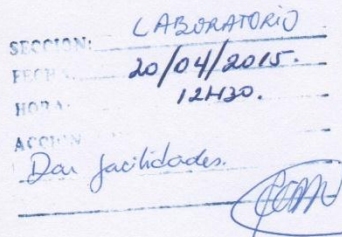 SECCION: LABORATORIO
FECHA: 20/04/2015.
HORA: 12H30.
ACCION
Dar facilidades.